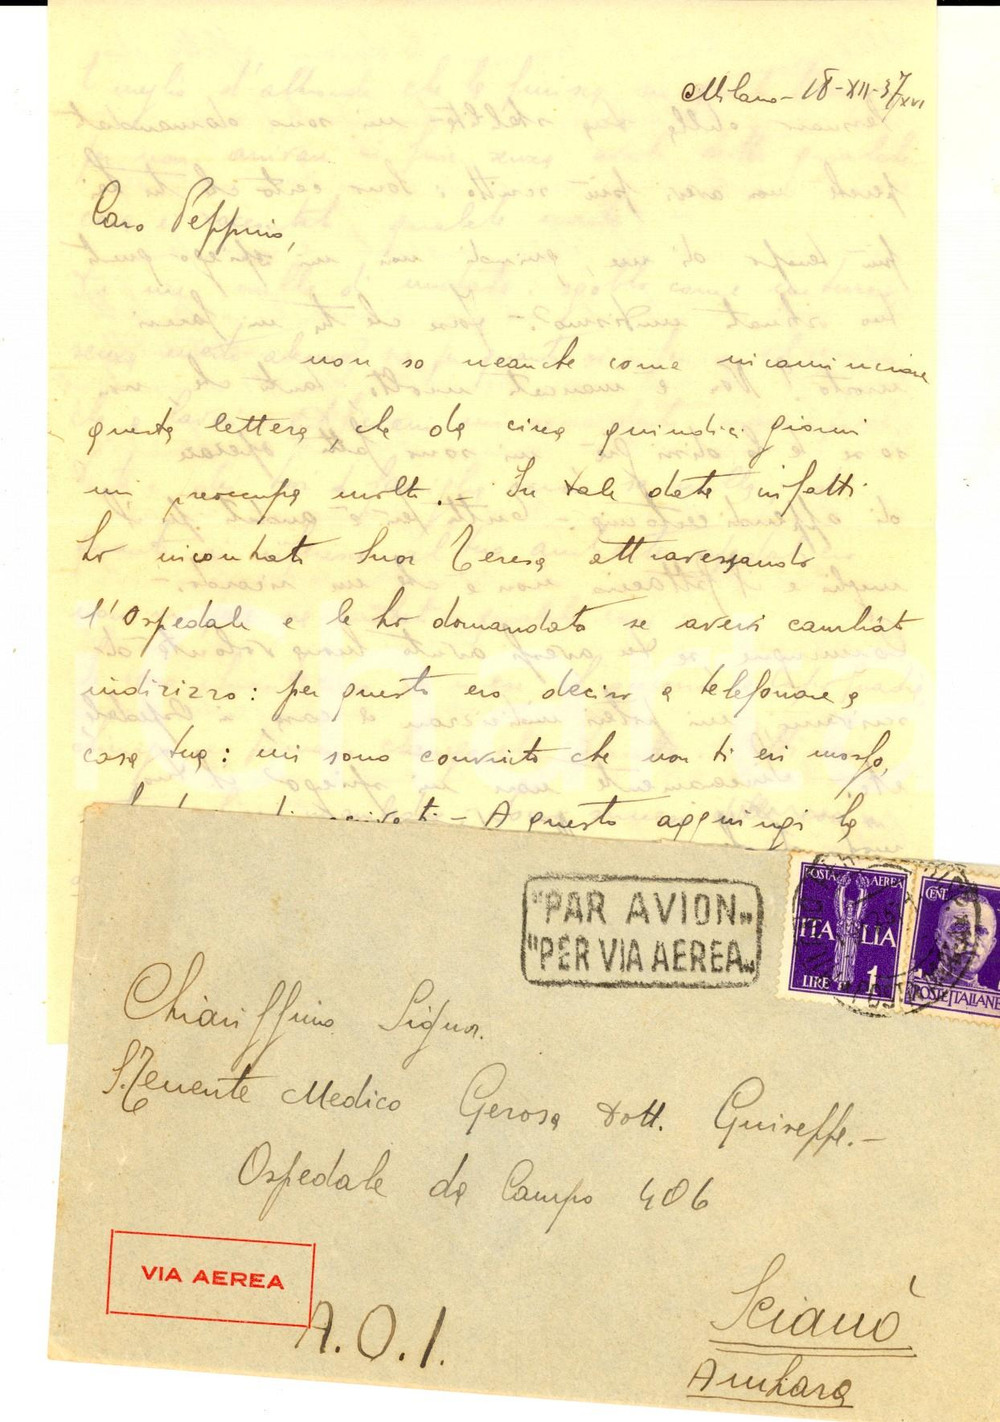 Milano - 18-XII-37 XVI
Caro Peppino,
non so neanche come incominciare
questa lettera che da circa quindici giorni
mi preoccupa molto. - In tale data infatti
ho incontrato Suor Teresa attraversando
l'Ospedale e le ho domandato se avevi cambiato
indirizzo: per questo ero deciso a telefonare a
casa tua: mi sono convinto che non ti eri mosso,
- A questo aggiungi la
"PAR AVION"
"PER VIA AEREA"
POSTA AEREA
ITALIA
LIRE 1
CENT.
POSTE ITALIANE
Chiar/ssimo Signor.
S. Tenente Medico Gerosa Dott. Giuseppe. -
Ospedale da Campo 406
VIA AEREA
A.O.I.
Scianò
Amhara